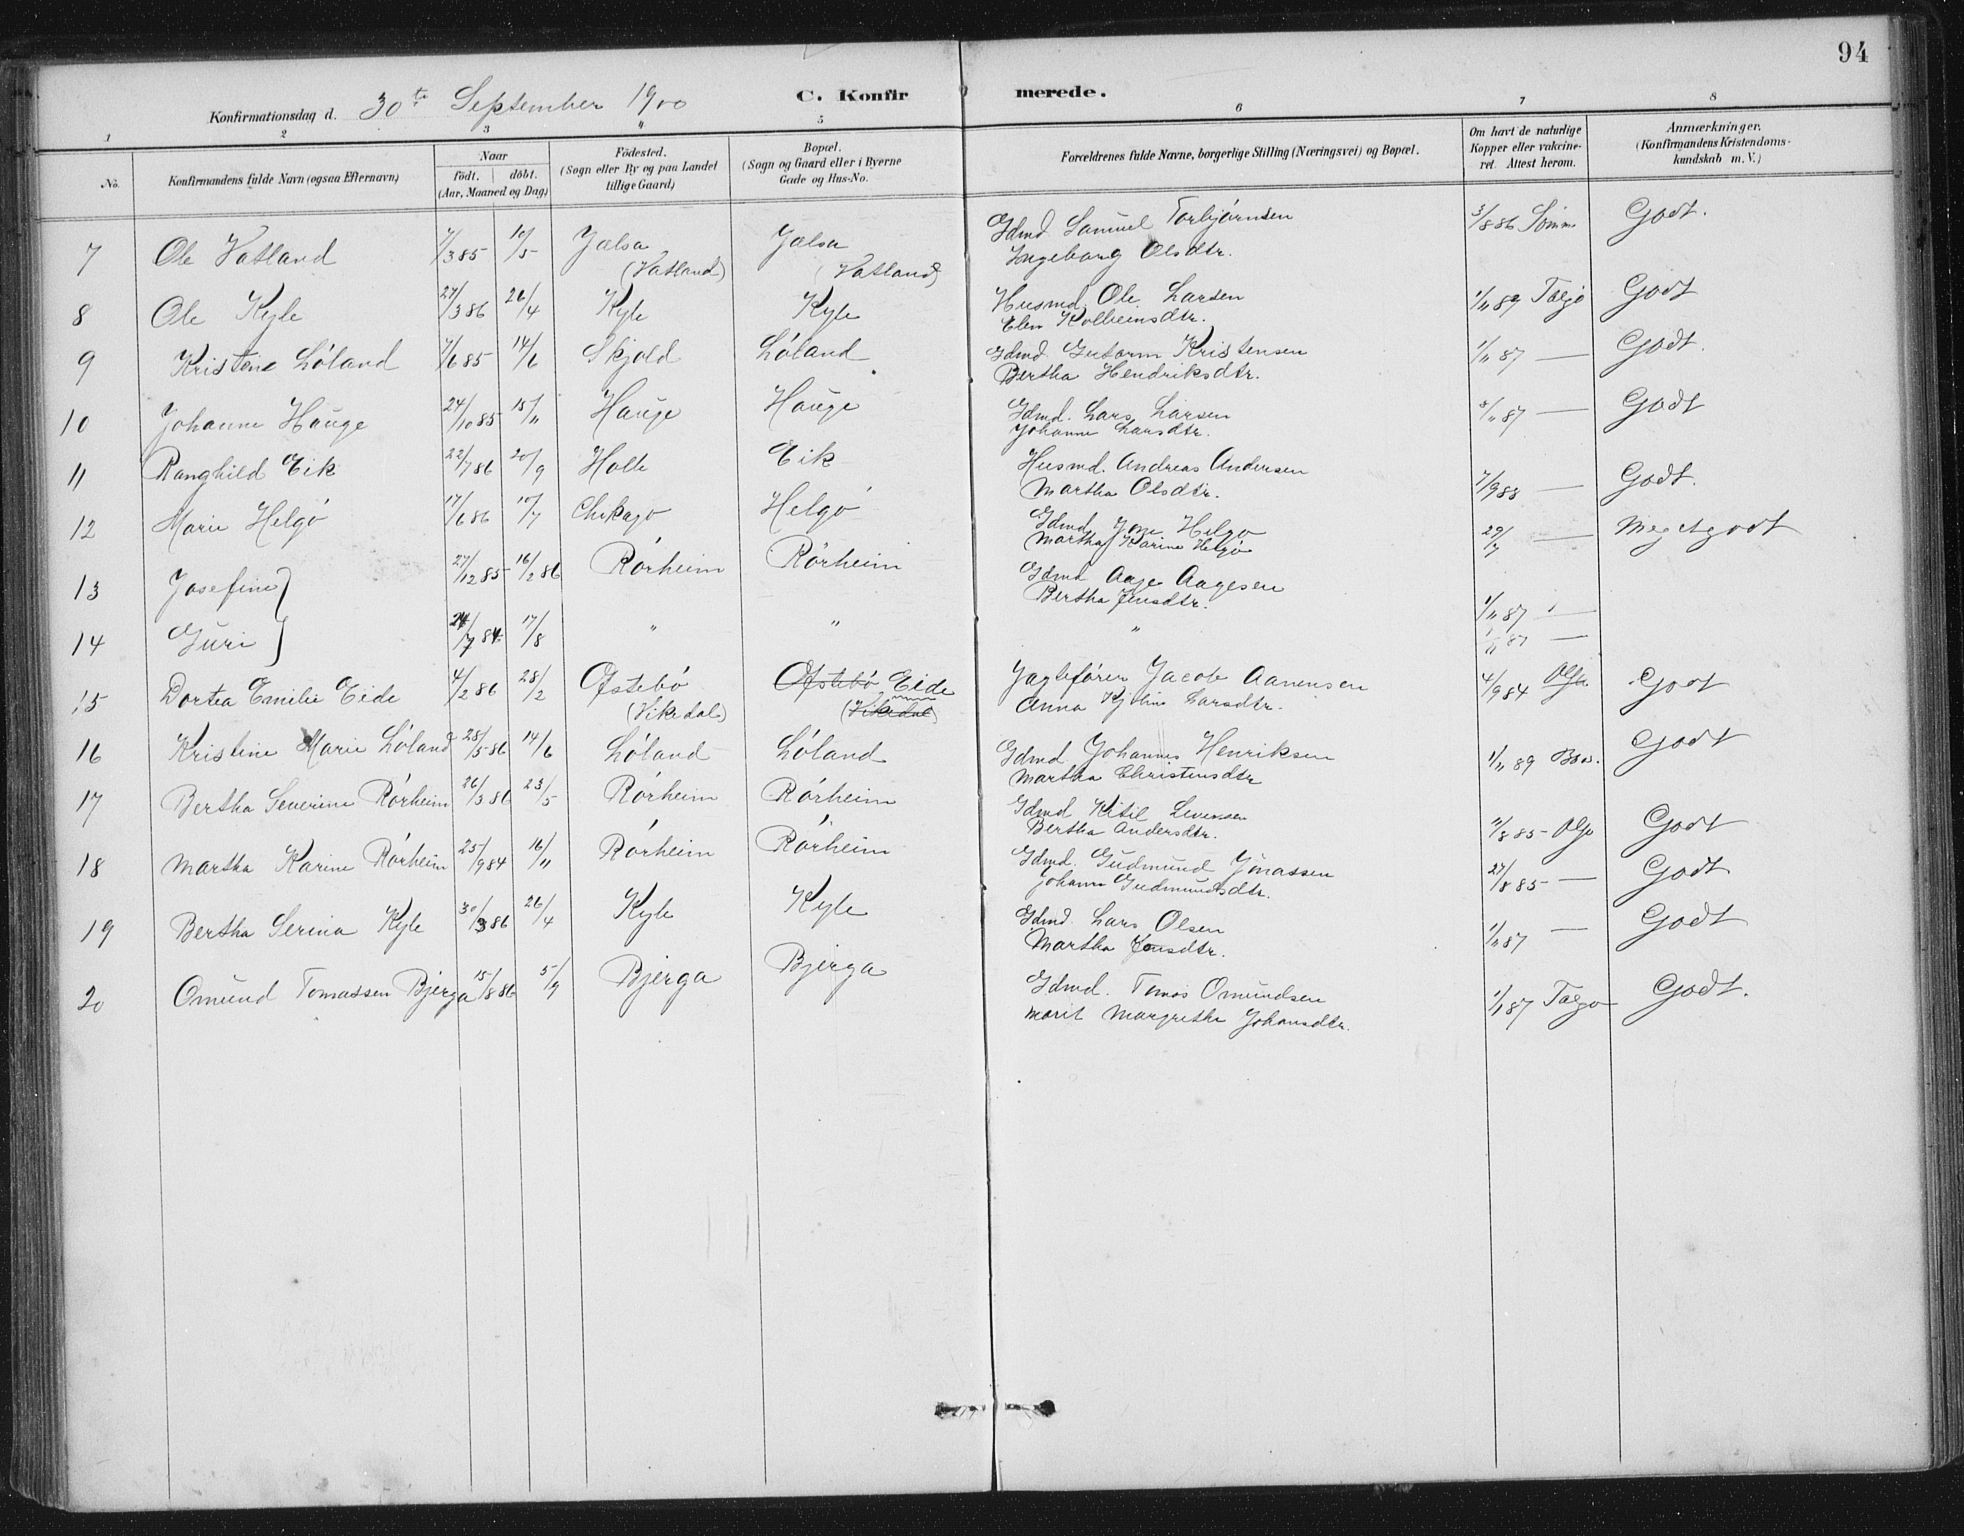 94
Konfirmationsdag d. 30te September 1900 C. Konfir merede.
1 2 3 4 5 6 7 8
No.
Konfirmandens fulde Navn (ogsaa Efternavn)
Naar
født. døbt.
(Aar, Maaned og Dag)
Fødested.
(Sogn eller By og paa Landet
tillige Gaard)
Bopæl.
(Sogn og Gaard eller i Byerne
Gade og Hus-No.
Forældrenes fulde Navne, borgerlige Stilling (Næringsvei) og Bopæl.
Om havt de naturlige
Kopper eller vakcine-
ret. Attest herom.
Anmærkninger.
(Konfirmandens Kristendoms-
kundskab m. V.)
7 Ole Vatland 7/3 85 10/5 Jælsa Jælsa Gdmd Samuel Torbjørnsen 3/8 86 Godt.
(Vatland) (Vatland) Ingeborg Olsdtr.
8 Ole Kyle 27/3 86 26/4 Kyle Kyle Husmd. Ole Larsen 1/11 89 Talgø Godt
Elen Kolbeinsdtr.
9 Kristene Løland 7/6 85 14/6 Skjold Løland Gdmd Gutorm Kristensen 1/11 87 — Godt.
Bertha Hendriksdtr.
10 Johanne Hauge 24/10 85 15/11 Hauge Hauge Gdmd. Lars Larsen 8/11 87 — Godt
Johanne Larsdtr.
11 Ranghild Eik 22/7 86 20/9 Holte Eik Husmd. Andreas Andersen 7/9 88 — Godt.
Martha Olsdtr.
12 Marie Helgø 17/6 86 10/7 Chikago Helgø Gdmd Helgø 29/7 — Megetgodt
Martha Karine Helgø
13 Josefine 27/12 85 16/2 86 Rørheim Rørheim Gdmd Aage Aagesen 1/11 87 —
Bertha Jensdtr.
14 Guri 24/7 84 17/8 " " " 1/11 87 —
15 Dortea Emilie Eide 4/2 86 28/2 Øfstebø Øfstebø Eide Jagtefører Jacob Aanensen 4/9 84 Godt
(Vikedal) (Vikedal) Anna Larsdtr.
16 Kristine Marie Løland 28/5 86 14/6 Løland Løland Gdmd Johannes Henriksen 1/11 89 Godt
Martha Christensdtr
17 Bertha Severine Rørheim 26/3 86 23/5 Rørheim Rørheim Gdmd Kitil 11/8 85 Godt
Bertha Andersdtr.
18 Martha Karine Rørheim 25/9 84 16/11 Rørheim Rørheim Gdmd. Gudmund Jonassen 27/8 85 — Godt
Johanne Gudmundsdtr.
19 Bertha Serina Kyle 30/3 86 26/4 Kyle Kyle Gdmd. Lars Olsen 1/11 87 — Godt
Martha Jensdtr.
20 Omund Tomassen Bjerga 15/8 86 5/9 Bjerga Bjerga Gdmd. Tomas Omundsen 1/11 87 Talgø Godt.
Marit Margrethe Johansdtr.